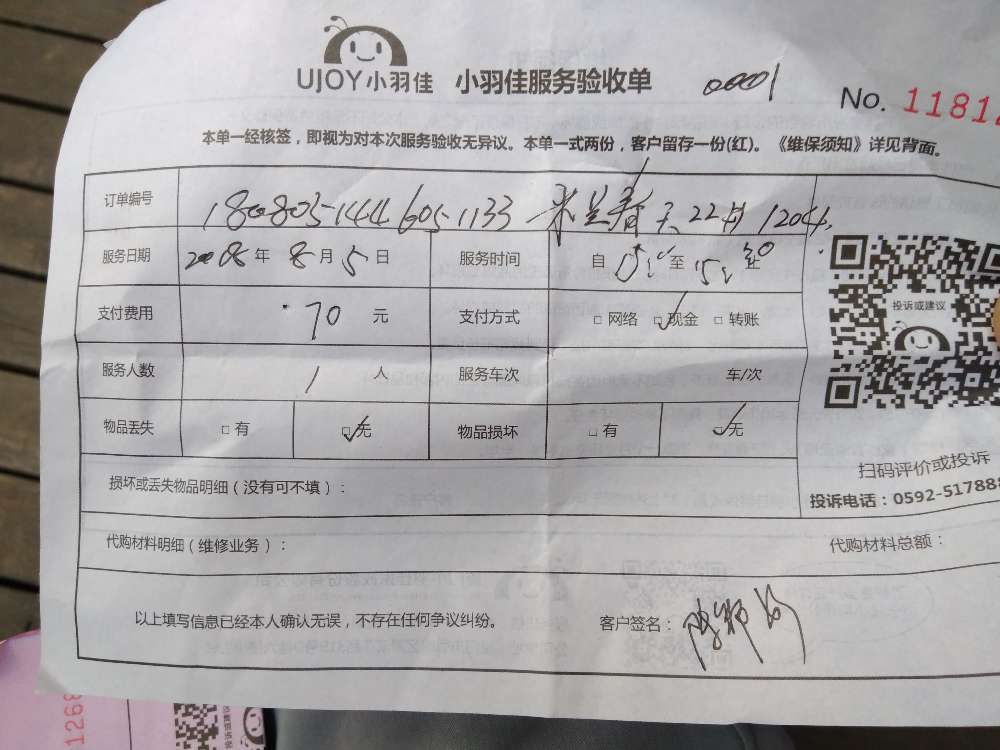 UJOY小羽佳 小羽佳服务验收单 0001
No. 11812
本单一经核签，即视为对本次服务验收无异议。本单一式两份，客户留存一份(红)。《维保须知》详见背面。
订单编号 18080514446051133 22 1204
服务日期 2018年8月5日 服务时间 自 至
支付费用 70 元 支付方式 □ 网络 □ 现金 □ 转账
投诉或建议
服务人数 1 人 服务车次 车/次
物品丢失 □ 有 □ 无 物品损坏 □ 有 □ 无
扫码评价或投诉
损坏或丢失物品明细（没有可不填）：
投诉电话：0592-517888
代购材料明细（维修业务）： 代购材料总额：
以上填写信息已经本人确认无误，不存在任何争议纠纷。 客户签名：
1268